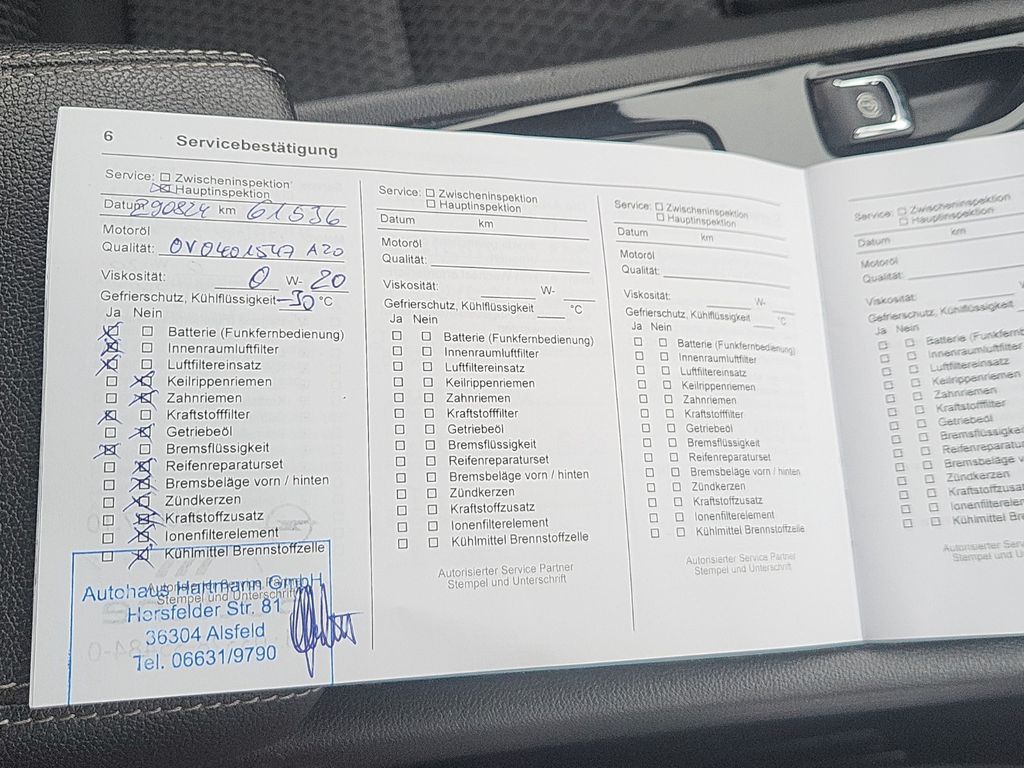 6 Servicebestätigung
Service: Zwischeninspektion
Hauptinspektion
Datum 290824 km 61536
Motoröl
Qualität: OV0401547 A20
Viskosität: 0 W- 20
Gefrierschutz, Kühlflüssigkeit -30 °C
Ja Nein
Batterie (Funkfernbedienung)
Innenraumluftfilter
Luftfiltereinsatz
Keilrippenriemen
Zahnriemen
Kraftstofffilter
Getriebeöl
Bremsflüssigkeit
Reifenreparaturset
Bremsbeläge vorn / hinten
Zündkerzen
Kraftstoffzusatz
Ionenfilterelement
Kühlmittel Brennstoffzelle
Autorisierter Service Partner
Stempel und Unterschrift
Autohaus Hartmann GmbH
Hersfelder Str. 81
36304 Alsfeld
Tel. 06631/9790
Service: Zwischeninspektion
Hauptinspektion
Datum km
Motoröl
Qualität:
Viskosität: W-
Gefrierschutz, Kühlflüssigkeit °C
Ja Nein
Batterie (Funkfernbedienung)
Innenraumluftfilter
Luftfiltereinsatz
Keilrippenriemen
Zahnriemen
Kraftstofffilter
Getriebeöl
Bremsflüssigkeit
Reifenreparaturset
Bremsbeläge vorn / hinten
Zündkerzen
Kraftstoffzusatz
Ionenfilterelement
Kühlmittel Brennstoffzelle
Autorisierter Service Partner
Stempel und Unterschrift
Service: Zwischeninspektion
Hauptinspektion
Datum km
Motoröl
Qualität:
Viskosität: W-
Gefrierschutz, Kühlflüssigkeit °C
Ja Nein
Batterie (Funkfernbedienung)
Innenraumluftfilter
Luftfiltereinsatz
Keilrippenriemen
Zahnriemen
Kraftstofffilter
Getriebeöl
Bremsflüssigkeit
Reifenreparaturset
Bremsbeläge vorn / hinten
Zündkerzen
Kraftstoffzusatz
Ionenfilterelement
Kühlmittel Brennstoffzelle
Autorisierter Service Partner
Stempel und Unterschrift
Service: Zwischeninspektion
Hauptinspektion
Datum km
Motoröl
Qualität:
Viskosität: W-
Gefrierschutz, Kühlflüssigkeit
Ja Nein
Batterie (Funkfernb
Innenraumluftfilter
Luftfiltereinsatz
Keilrippenriemen
Zahnriemen
Kraftstofffilter
Getriebeöl
Bremsflüssigke
Reifenreparatur
Bremsbeläge vo
Zündkerzen
Kraftstoffzusat
Ionenfilterele
Kühlmittel Bren
Autorisierter Serv
Stempel und